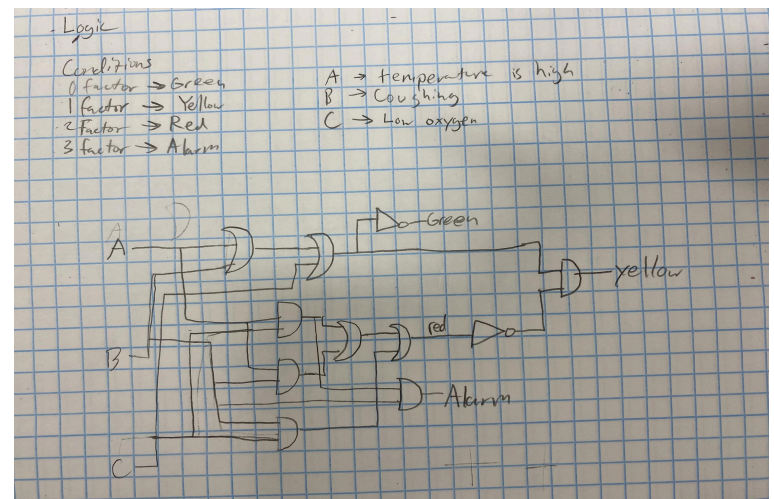 Logic
Conditions
0 factor → Green
1 factor → Yellow
2 Factor → Red
3 factor → Alarm
A → temperature is high
B → Coughing
C → Low oxygen
Green
A
yellow
red
B
Alarm
C